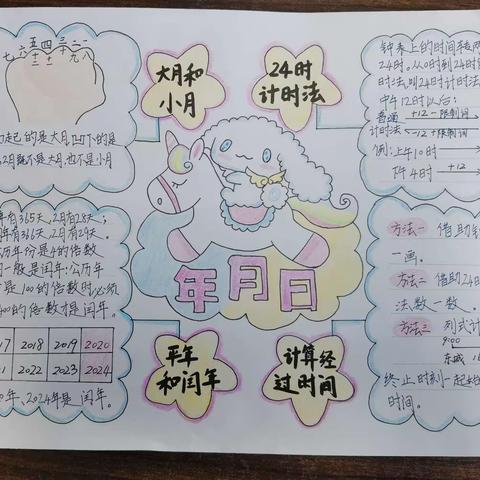 七六五四三二一
十二 十一 十 九 八
起的是大月,凹下的是
2月既不是大月,也不是小月
大月和
小月
24时
计时法
24时,从0时到24时
时法,叫24时计时法
中午12时以后:
普通 +12-限制词
计时法 -12+限制词
例:上午10时
下午4时 +12
年有365天,2月有28天;
年有366天,2月有29天。
历年份是4的倍数
一般是闰年;公历年
是100的倍数时,必须
400的倍数才是闰年。
17 2018 2019 2020
2022 2023 2024
年、2024年是闰年。
年月日
平年
和闰年
计算经
过时间
方法一 借助
一画。
方法二 借助24
法数一数。
方法三 列式计
9:00
东城
终止时刻-起始
时间。